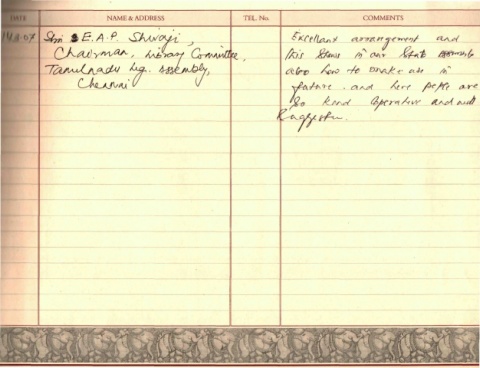 DATE NAME & ADDRESS TEL. No. COMMENTS
Shri E.A.P. Shivaji,
Chairman, Library Committee,
Tamilnadu Leg. Assembly,
Chennai
Excellant arrangement and
this shows in our State
also have to make us in
future and here peple are
So kind Coperative and